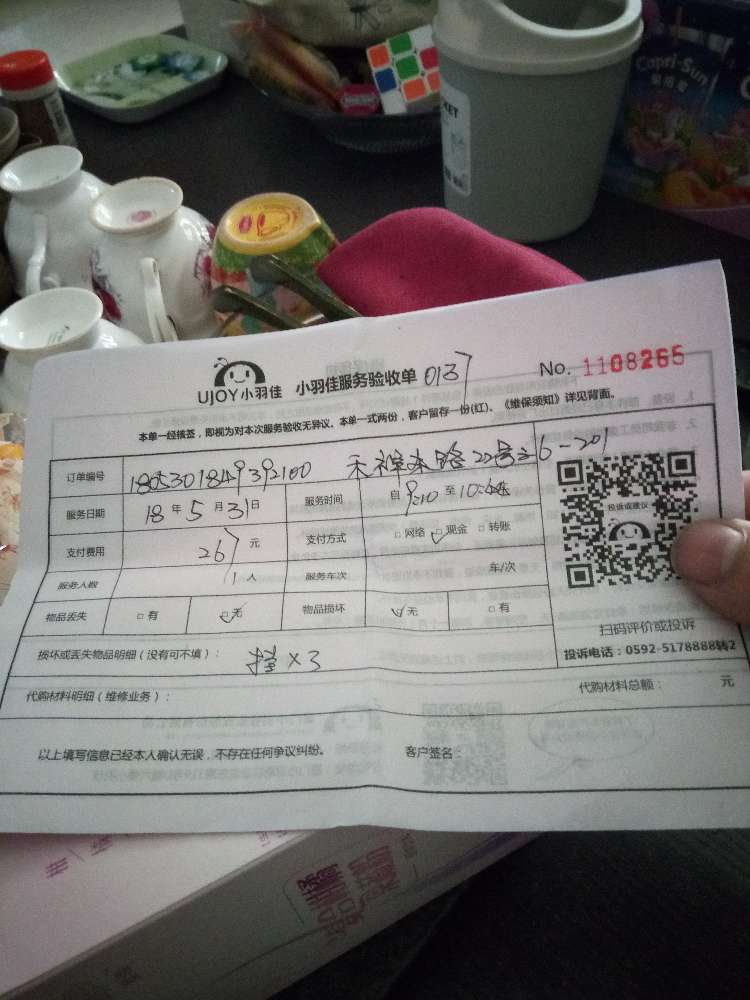 Capri-Sun
UJOY小羽佳 小羽佳服务验收单 0137
No. 1108265
本单一经接签，即视为对本次服务验收无异议。本单一式两份，客户留存一份(红)。《维保须知》详见背面。
订单编号 1805301849392100 路22号之6-201
服务日期 18 年 5 月 31 日 服务时间 自 9:10 至
支付费用 267 元 支付方式 □ 网络 ☑ 现金 □ 转账
服务人数 1 人 服务车次 车/次
物品丢失 □ 有 ☑ 无 物品损坏 ☑ 无 □ 有
投诉或建议
扫码评价或投诉
投诉电话：0592-5178888转2
损坏或丢失物品明细（没有可不填）： ×3
代购材料明细（维修业务）： 代购材料总额： 元
以上填写信息已经本人确认无误，不存在任何争议纠纷。 客户签名：